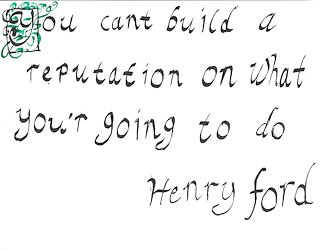 You cant build a
reputation on what
you'r going to do
Henry ford